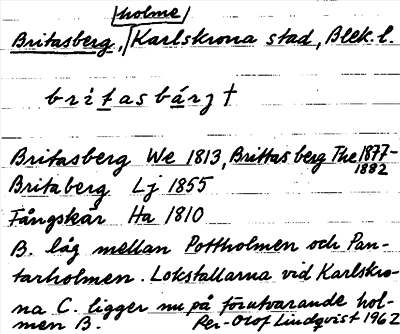 holme
Britasberg, Karlskrona stad, Blek. l.
britasbárjt
Britasberg We 1813, Brittasberg The 1877-
1882
Britaberg Lj 1855
Fångskär Ha 1810
B. låg mellan Pottholmen och Pan-
tarholmen. Lokstallarna vid Karlskro-
na C. ligger nu på förutvarande hol-
men B. Per-Olof Lindqvist 1962